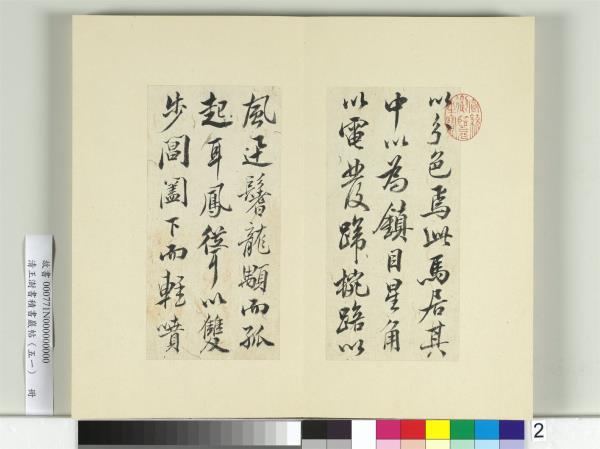 以分色焉此馬居其
中以為鎮目星角
以電發蹄椀踣以
風迅鬐龍顒而孤
起耳鳳聳以雙
步閶闔下而輕噴
故書 000771N000000000
清王澍書積書巖帖（五一） 冊
2